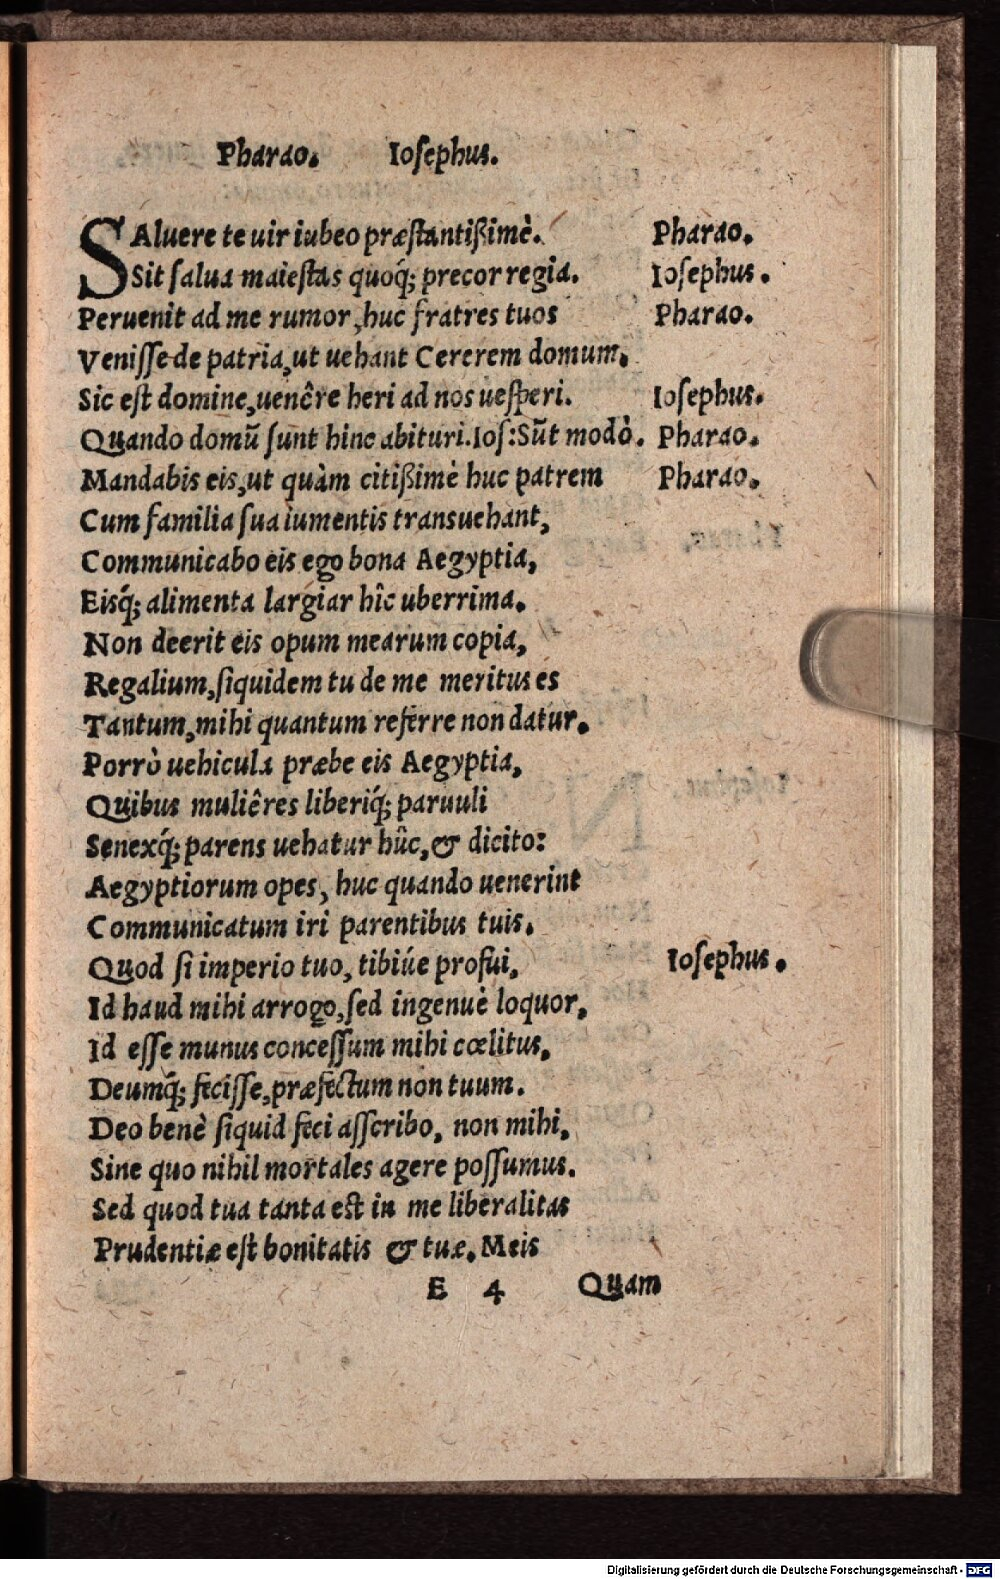 Pharao. Iosephus.
SAluere te uir iubeo præstantißimè. Pharao.
Sit salua maiestas quoq́; precor regia. Iosephus.
Peruenit ad me rumor, huc fratres tuos Pharao.
Venisse de patria, ut uehant Cererem domum.
Sic est domine, uenêre heri ad nos uesperi. Iosephus.
Quando domũ sunt hinc abituri. Ios: Sũt modò. Pharao.
Mandabis eis, ut quàm citißimè huc patrem Pharao.
Cum familia sua iumentis transuehant,
Communicabo eis ego bona Aegyptia,
Eisq́; alimenta largiar hîc uberrima.
Non deerit eis opum mearum copia,
Regalium, siquidem tu de me meritus es
Tantum, mihi quantum referre non datur.
Porrò uehicula præbe eis Aegyptia,
Quibus muliêres liberiq́; paruuli
Senexq́; parens uehatur hûc, & dicito:
Aegyptiorum opes, huc quando uenerint
Communicatum iri parentibus tuis.
Quod si imperio tuo, tibiúe profui, Iosephus.
Id haud mihi arrogo, sed ingenuè loquor,
Id esse munus concessum mihi cœlitus,
Deumq́; fecisse, præfectum non tuum.
Deo benè siquid feci asscribo, non mihi,
Sine quo nihil mortales agere possumus.
Sed quod tua tanta est in me liberalitas
Prudentiæ est bonitatis & tuæ. Meis
E 4 Quam
Digitalisierung gefördert durch die Deutsche Forschungsgemeinschaft - DFG